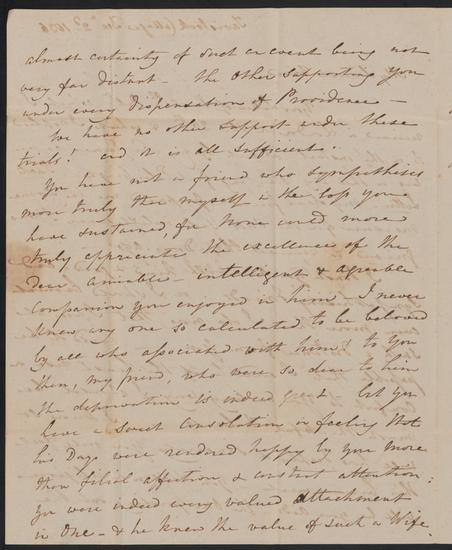 almost certainty of such an event being not
very far distant - the other supporting you
under every dispensation of Providence -
We have no other support under these
trials! and it is all sufficient.
You have not a friend who sympathises
more truly than myself in the loss you
have sustained, for none could more
truly appreciate the excellence of the
dear amiable - intelligent & agreable
Companion you enjoyed in him - I never
knew any one so calculated to be beloved
by all who associated with him! to you
then, my friend, who were so dear to him
the deprivation is indeed great but you
have a sweet Consolation in feeling that
his Days were rendered happy by your more
than filial affection & constant attention:
You were indeed every valued Attachment
in One - & he knew the value of such a Wife.